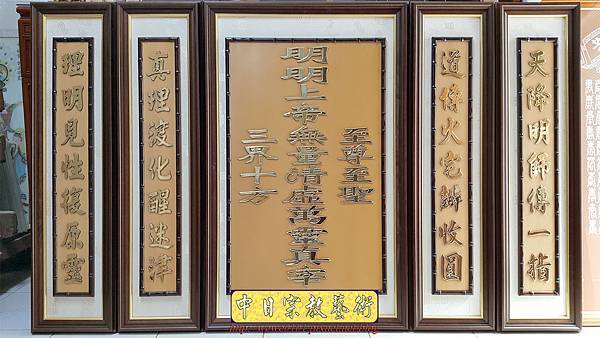 天降明師傳一指
道傳火宅辦收圓
至尊至聖
明明上帝無量清虛萬靈真宰
三界十方
真理渡化醒迷津
理明見性復原靈
中日宗教藝術